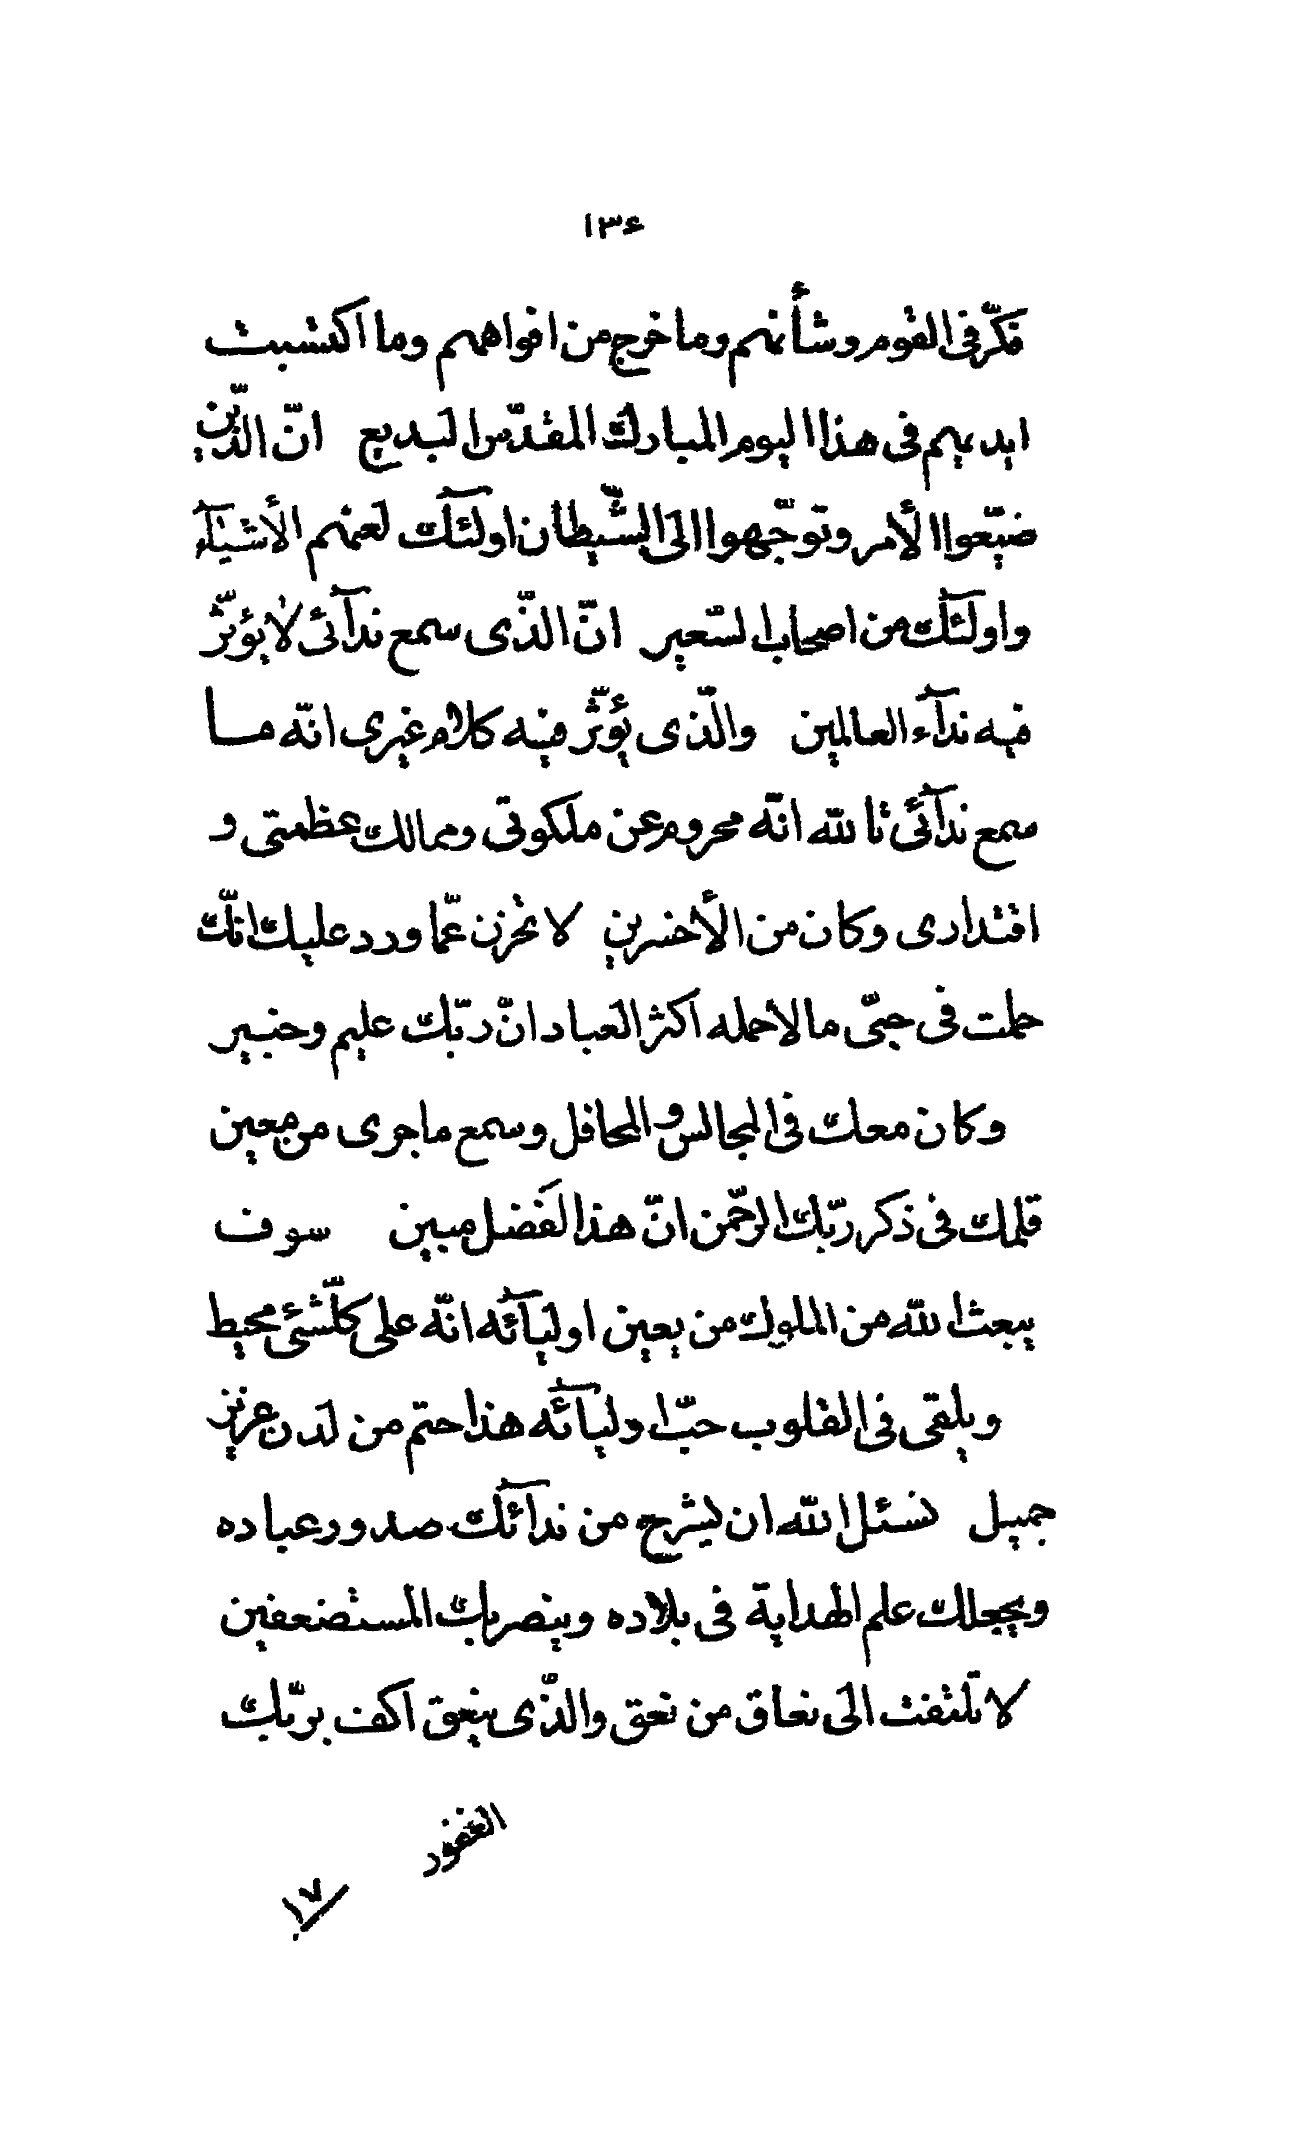 ١٣۶
فكّر فی القوم و شأنهم و ما خرج من افواههم و ما اكتسبت
ايديهم فی هذا اليوم المبارك المقدّس البديع انّ الّذين
ضيّعوا الأمر و توجّهوا الی الشّيطان اولئك لعنهم الأشيآء
و اولئك من اصحاب السّعير انّ الّذی سمع ندآئی لا يؤثّر
فيه ندآء العالمين و الّذی يؤثّر فيه كلام غيری انّه ما
سمع ندآئی تاللّه انّه محروم عن ملكوتی و ممالك عظمتی و
اقتداری و كان من الأخسرين لا تحزن عمّا ورد عليك انّك
حملت فی حبّی ما لا حمله اكثر العباد انّ ربّك عليم و خبير
و كان معك فی المجالس و المحافل و سمع ما جری من معين
قلمك فی ذكر ربّك الرّحمن انّ هذا لفضل مبين سوف
يبعث اللّه من الملوك من يعين اوليآئه انّه علی كلّشئی محيط
و يلقی فی القلوب حبّ اوليآئه هذا حتم من لدن عزيز
جميل نسئل اللّه ان يشرح من ندآئك صدور عباده
و يجعلك علم الهداية فی بلاده و ينصر بك المستضعفين
لا تلتفت الی نعاق من نعق و الّذی ينعق اكف بربّك
الغفور
١٧